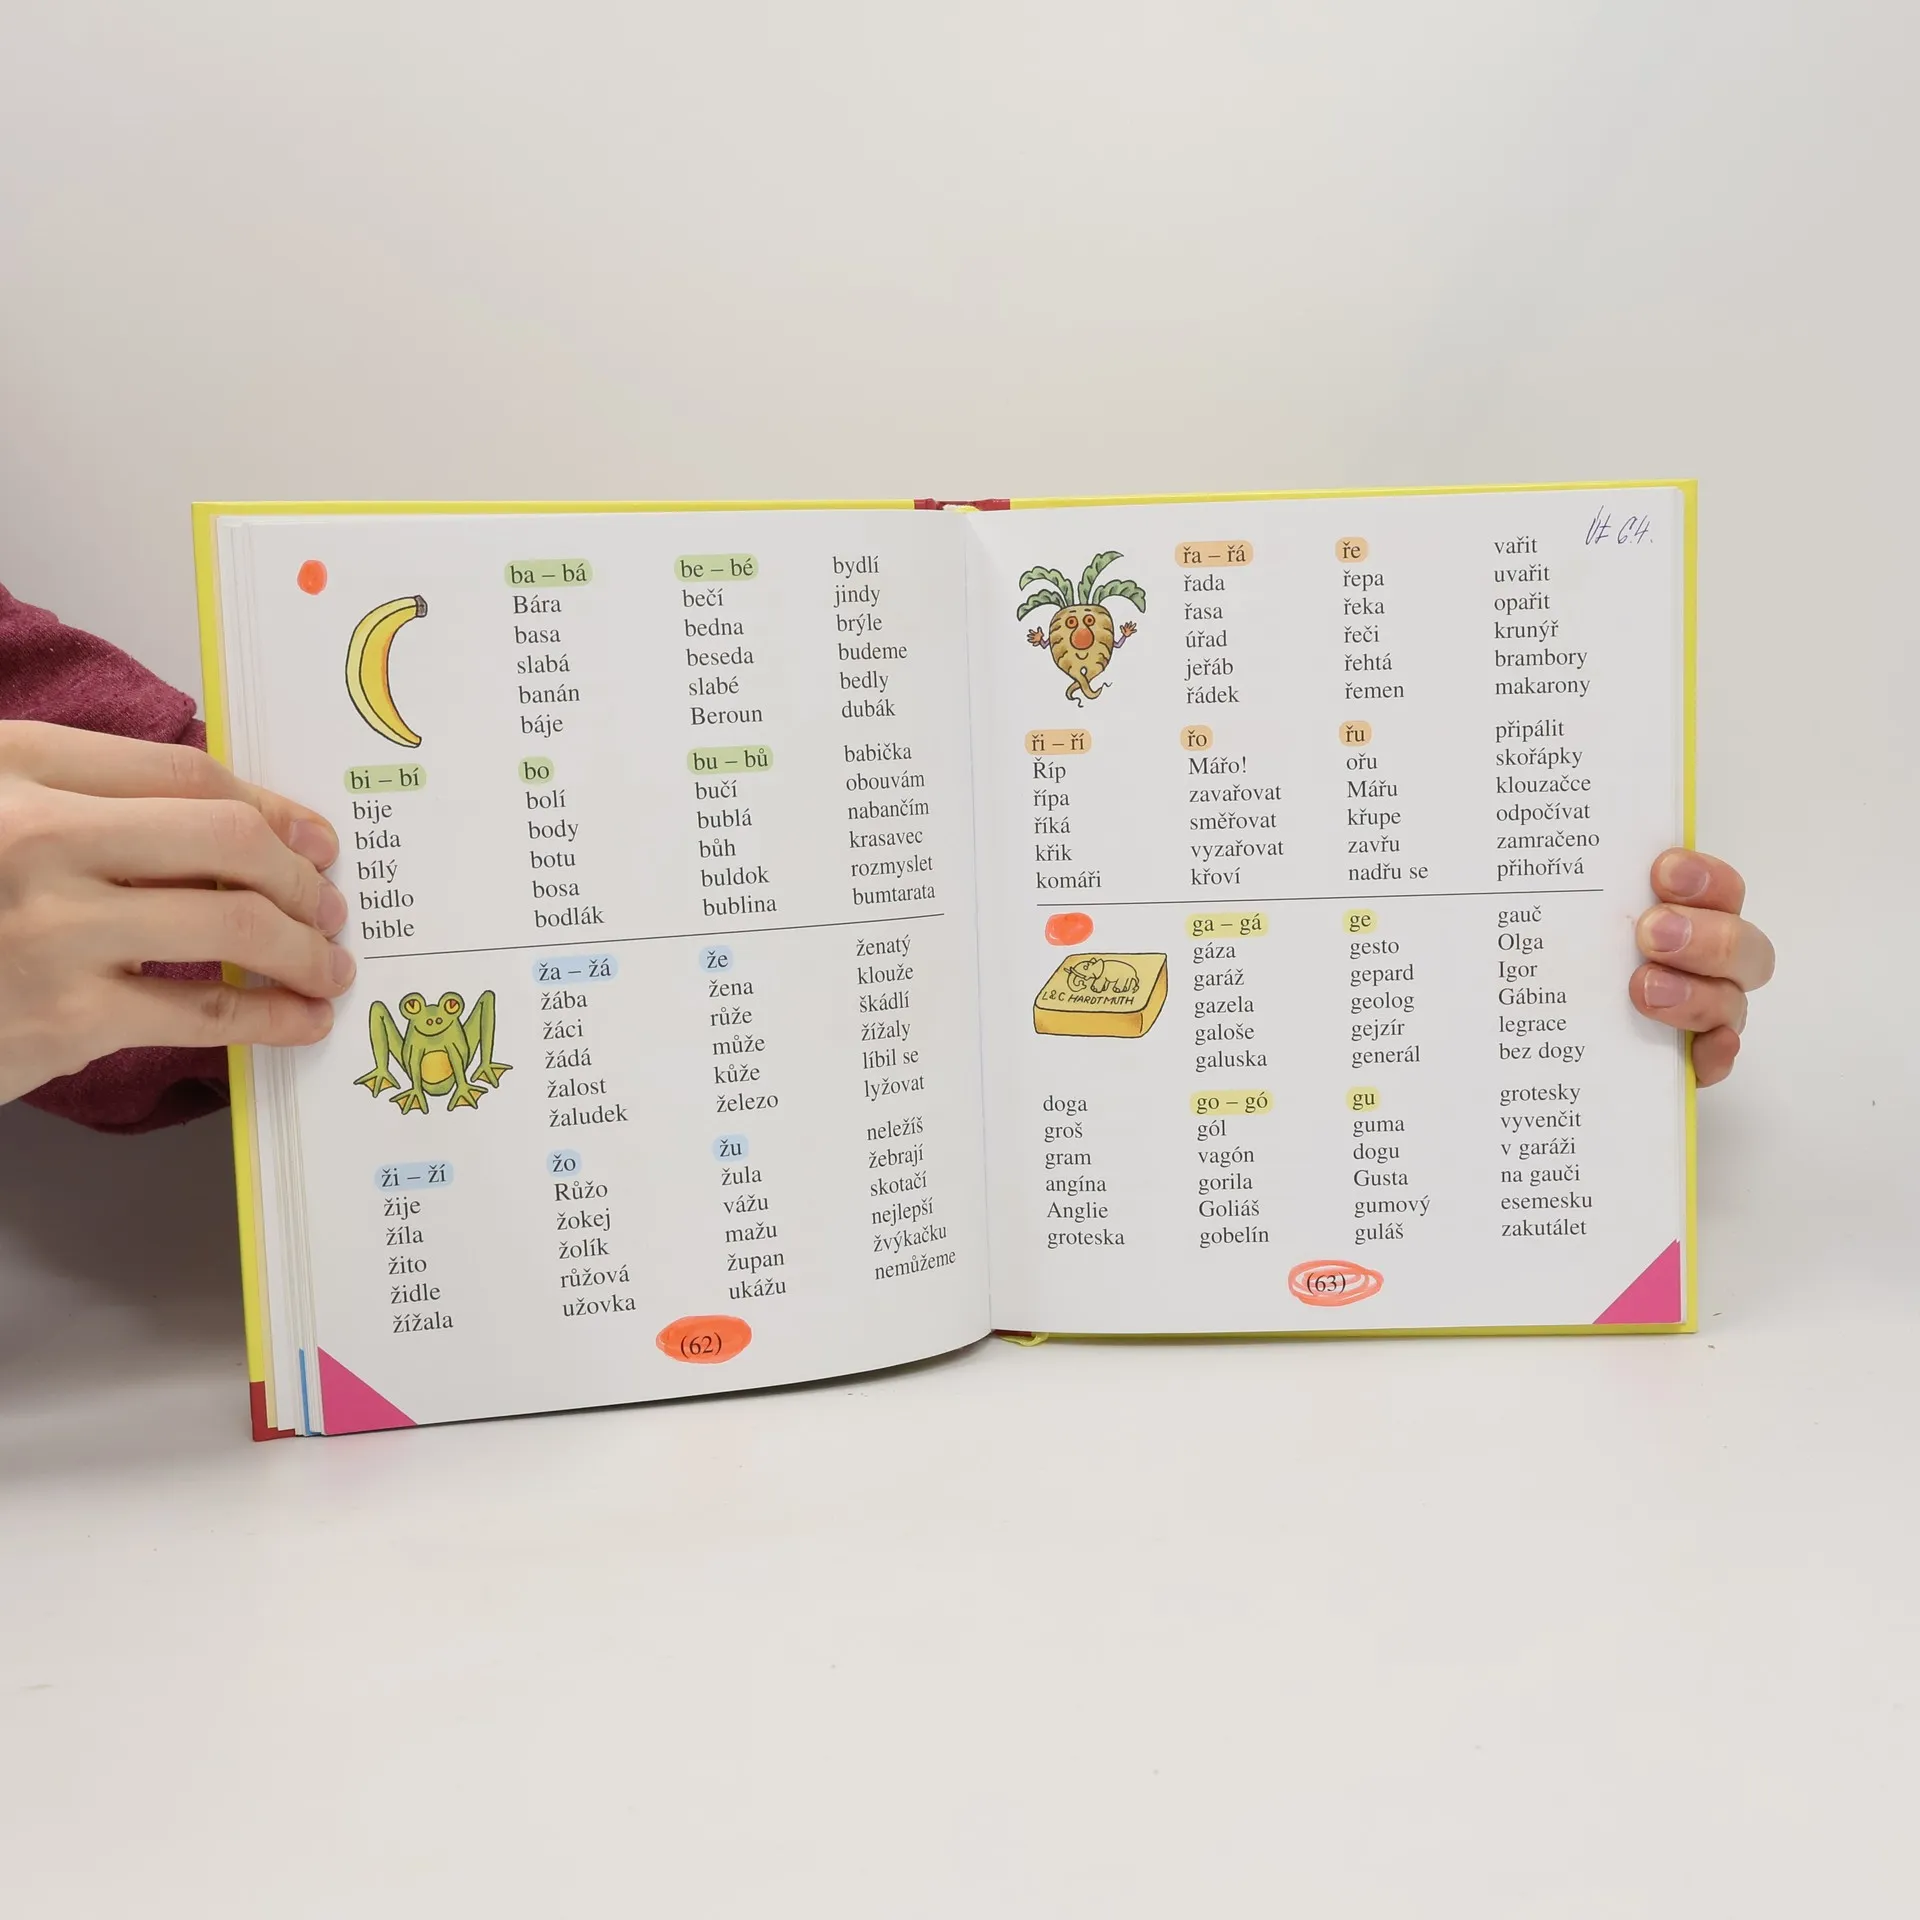 ba – bá
Bára
basa
slabá
banán
báje
be – bé
bečí
bedna
beseda
slabé
Beroun
bydlí
jindy
brýle
budeme
bedly
dubák
bi – bí
bije
bída
bílý
bidlo
bible
bo
bolí
body
botu
bosa
bodlák
bu – bů
bučí
bublá
bůh
buldok
bublina
babička
obouvám
nabančím
krasavec
rozmyslet
bumtarata
ža – žá
žába
žáci
žádá
žalost
žaludek
že
žena
růže
může
kůže
železo
ženatý
klouže
škádlí
žížaly
líbil se
lyžovat
ži – ží
žije
žíla
žito
židle
žížala
žo
Růžo
žokej
žolík
růžová
užovka
žu
žula
vážu
mažu
župan
ukážu
neležíš
žebrají
skotačí
nejlepší
žvýkačku
nemůžeme
(62)
řa – řá
řada
řasa
úřad
jeřáb
řádek
ře
řepa
řeka
řeči
řehtá
řemen
vařit
uvařit
opařit
krunýř
brambory
makarony
ři – ří
Říp
řípa
říká
křik
komáři
řo
Mářo!
zavařovat
směřovat
vyzařovat
křoví
řu
ořu
Mářu
křupe
zavřu
nadřu se
připálit
skořápky
klouzačce
odpočívat
zamračeno
přihořívá
L&C HARDTMUTH
ga – gá
gáza
garáž
gazela
galoše
galuska
ge
gesto
gepard
geolog
gejzír
generál
gauč
Olga
Igor
Gábina
legrace
bez dogy
doga
groš
gram
angína
Anglie
groteska
go – gó
gól
vagón
gorila
Goliáš
gobelín
gu
guma
dogu
Gusta
gumový
guláš
grotesky
vyvenčit
v garáži
na gauči
esemesku
zakutálet
(63)